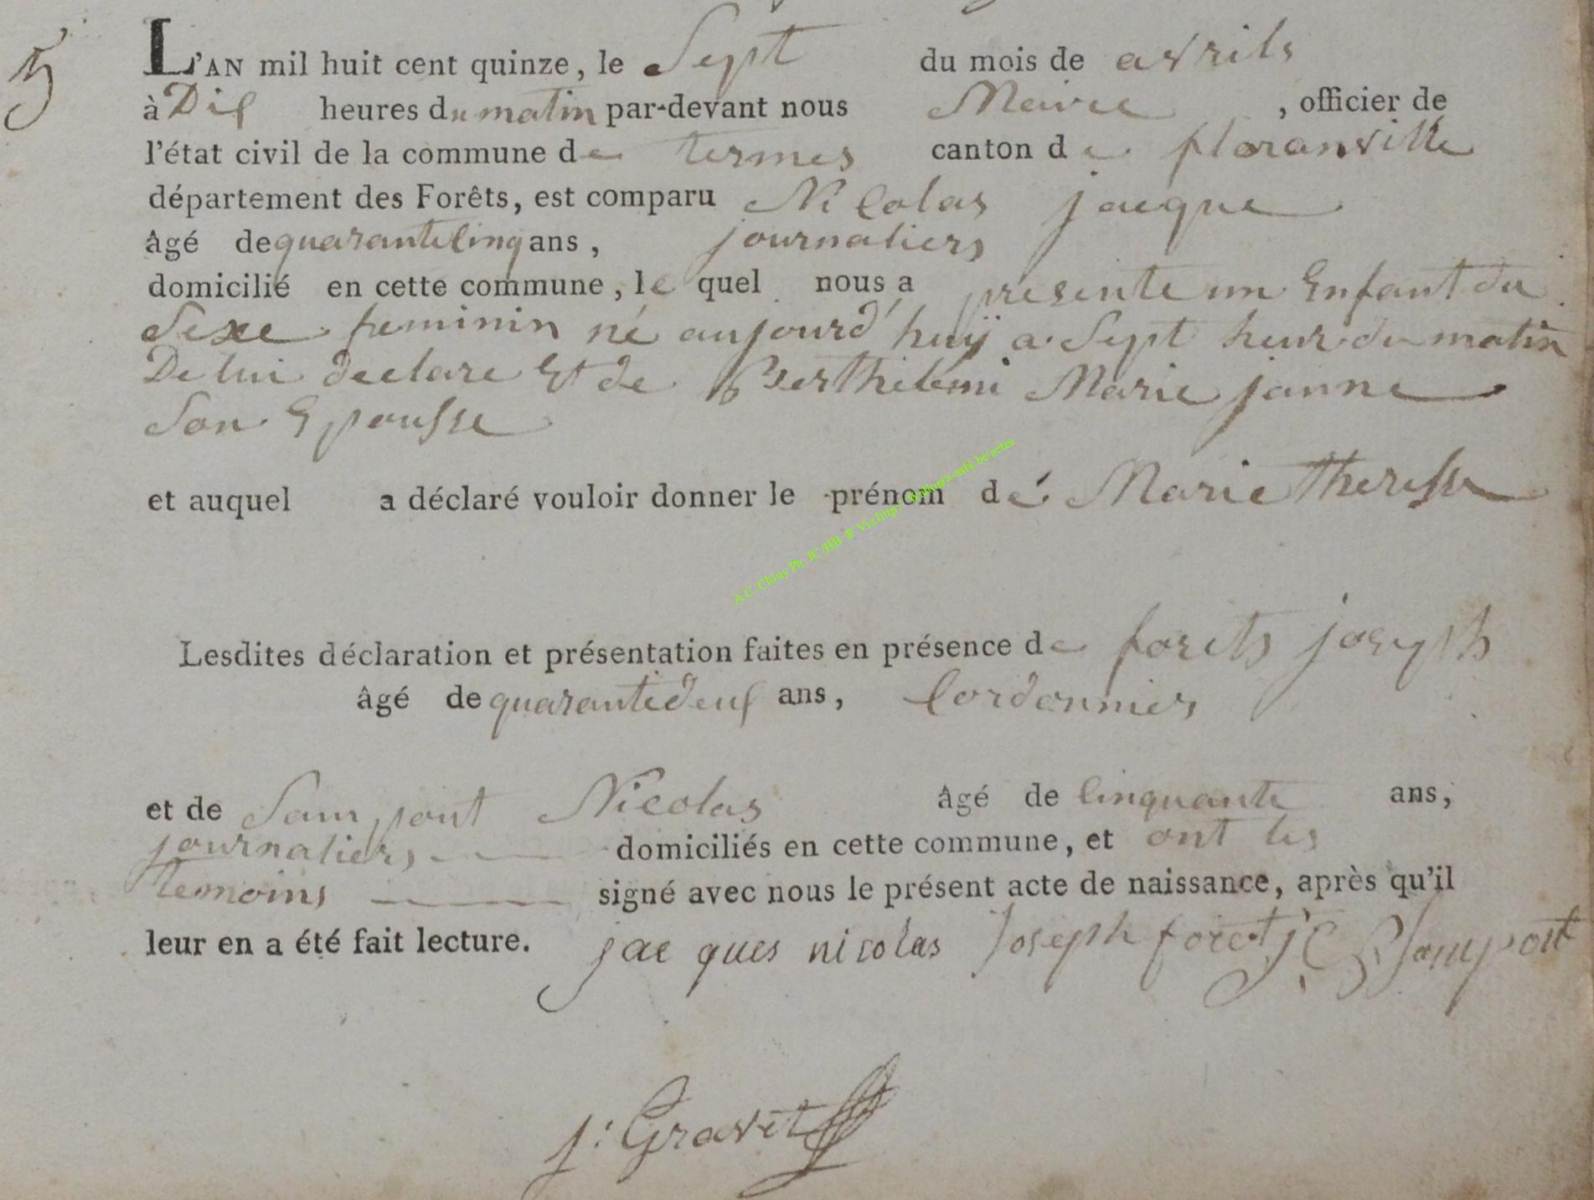 5
L'AN mil huit cent quinze, le Sept du mois de avrils
à Dis heures du matin par-devant nous Maire , officier de
l'état civil de la commune de termes canton de floranville
département des Forêts, est comparu Nicolas jacque
âgé de quarantecinq ans, journaliers
domicilié en cette commune, le quel nous a presente un Enfant du
Sexe feminin né aujourd'huÿ a Sept heur du matin
De lui declare Et de Berthelemi Marie janne
Son Epousse
et auquel a déclaré vouloir donner le prénom dé Marie Theresse
Lesdites déclaration et présentation faites en présence de forets joseph
âgé de quarantedeuf ans, Cordonniers
et de Sampont Nicolas âgé de Cinquante ans,
journaliers domiciliés en cette commune, et ont les
temoins signé avec nous le présent acte de naissance, après qu'il
leur en a été fait lecture. jacques nicolas Joseph foret Sampont
j: Gravet